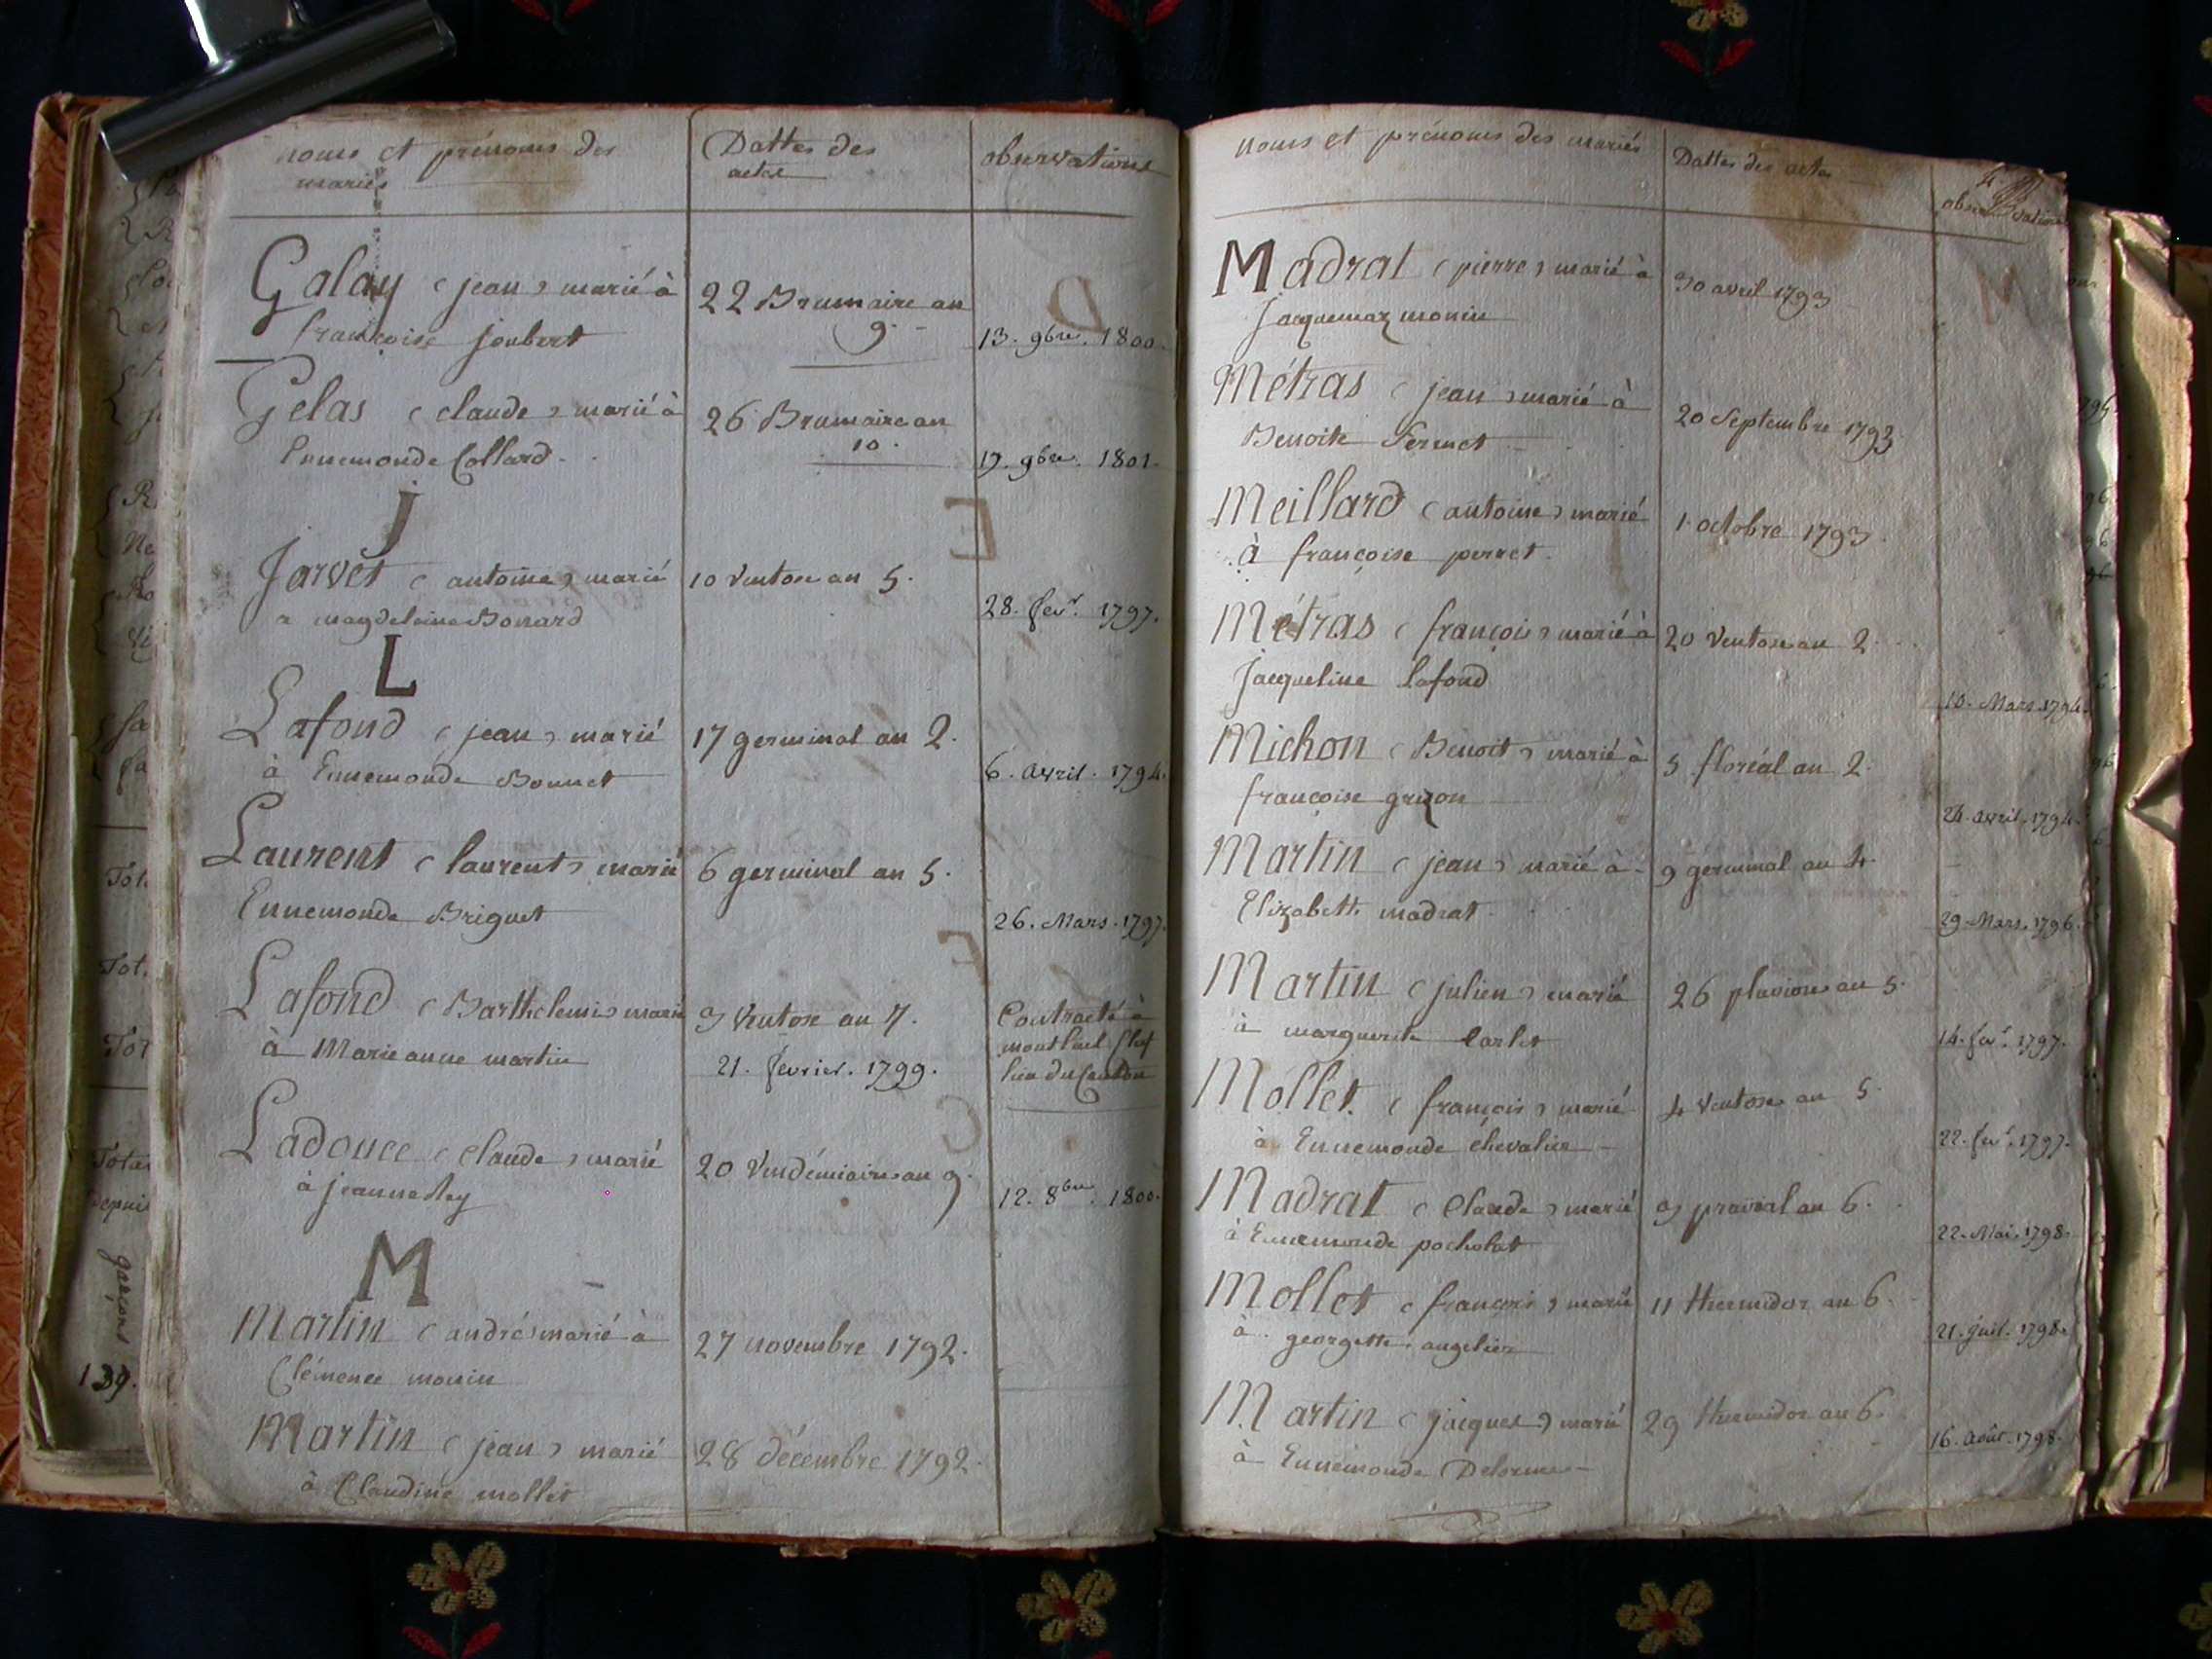 noms et prénoms des
mariés
Dattes des
actes
observations
Galay (jean) marié à
françoise joubert
22 Brumaire an
9.
13. 9bre. 1800.
Gelas (claude) marié à
Ennemonde Collard.
26 Brumaire an
10.
17. 9bre. 1801.
J
Jarvet (antoine) marié
a magdeleine Bonard
10 Ventose an 5.
28. fevr. 1797.
L
Lafond (jean) marié
à Ennemonde Bonnet
17 germinal an 2.
6. avril. 1794.
Laurent (laurent) marié
Ennemonde Briguet
6 germinal an 5.
26. Mars. 1797.
Lafond (Barthelemi) marié
à Marie anne martin
3 Ventose an 7.
21. février. 1799.
Contracté à
montluel Chef
lieu du Canton
Ladouce (Claude) marié
à jeanne Rey
20 Vendémiaire an 9.
12. 8bre. 1800.
M
Martin (andré) marié à
Clémence monin
27 novembre 1792.
Martin (jean) marié
à Claudine mollet
28 décembre 1792.
noms et prénoms des mariés
Dattes des actes
observations
Madrat (pierre) marié à
Jacquemaz monin
30 avril 1793
Métras (jean) marié à
Benoite
20 Septembre 1793
Meillard (antoine) marié
à françoise perret.
1. octobre 1793.
Métras (françois) marié à
Jacqueline Lafond
20 Ventose an 2.
10. Mars. 1794.
Michon (Benoit) marié à
françoise
5 floréal an 2.
24. avril. 1794.
Martin (jean) marié à
Elizabeth madrat.
9 germinal an 4.
29. Mars. 1796.
Martin (julien) marié
à marguerite Carlet
26 pluviose an 5.
14. fevr. 1797.
Mollet. (françois) marié
à Ennemonde chevalier
4 Ventose an 5.
22. fevr. 1797.
Madrat (Claude) marié
à Ennemonde pocholat
3 prairial an 6.
22. Mai. 1798.
Mollet (françois) marié
à georgette angelier
11 thermidor an 6.
21. juil. 1798.
Martin (jacques) marié
à Ennemonde Delorme
29 thermidor an 6.
16. août. 1798.
garçons
139.